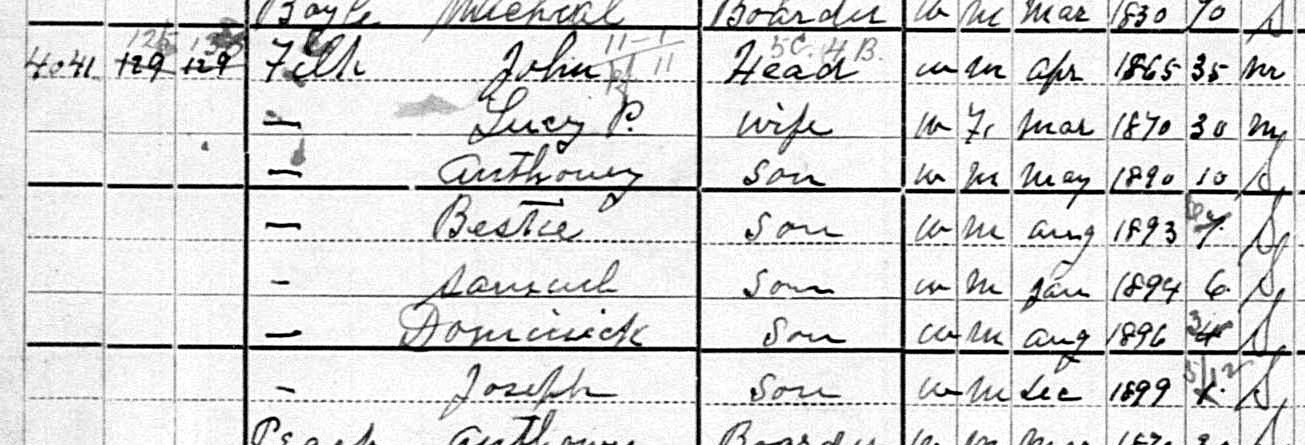 Boyle Micheal Boarder W M Mar 1830 70 S
4041 125 129 129 John Head W M Apr 1865 35 M
— Lucy P. Wife W F Mar 1870 30 M
— Anthoney Son W M May 1890 10 S
— Bestie Son W M Aug 1893 6 S
— Samuel Son W M Jan 1894 6 S
— Dominick Son W M Aug 1896 3 S
— Joseph Son W M Dec 1899 5/12 S
Anthoney Boarder W M